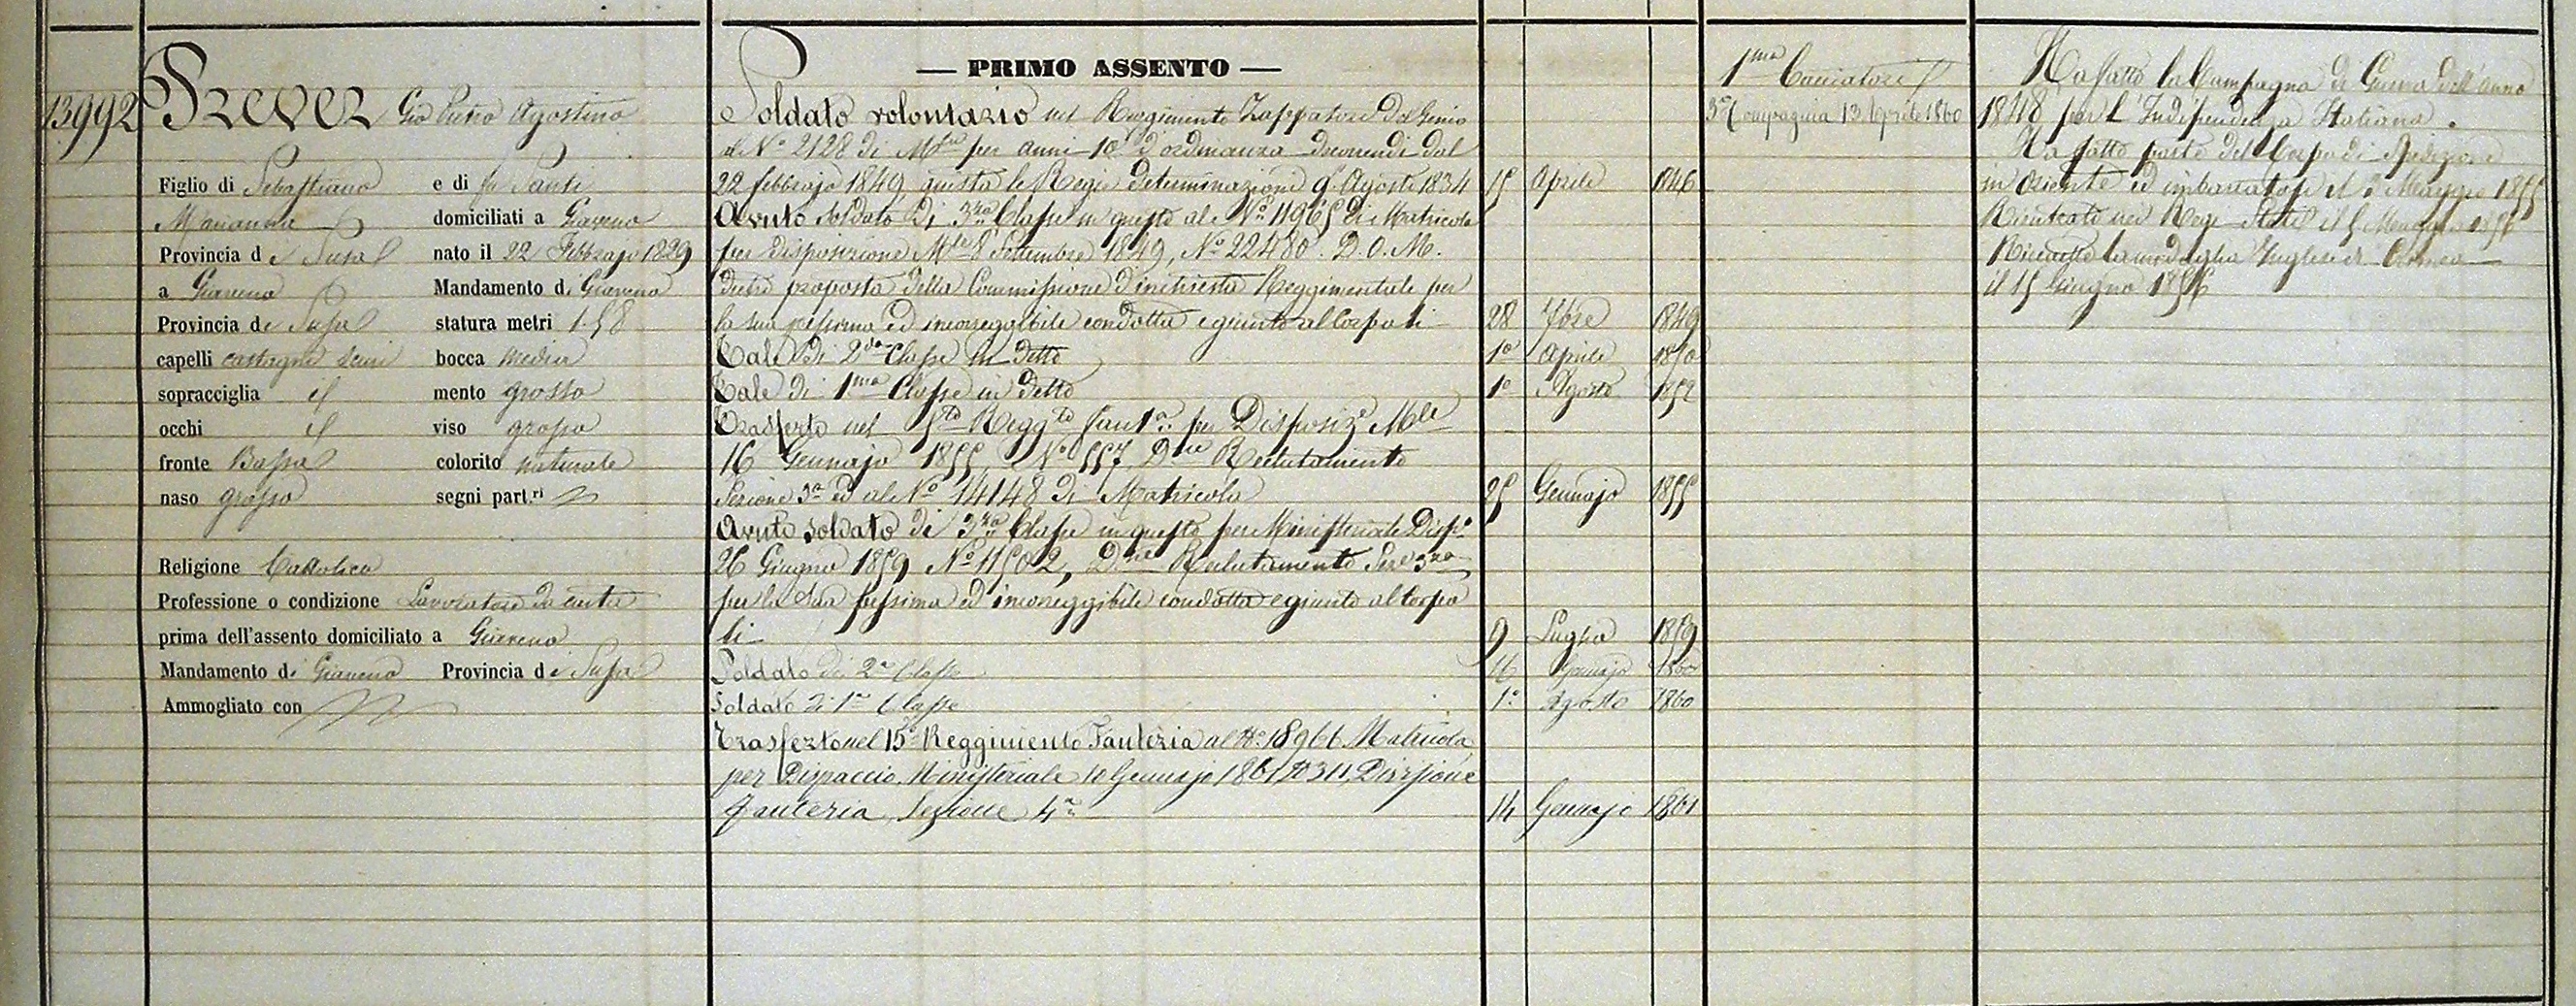 13992
Prever Gio Pietro Agostino
Figlio di Sebastiano e di fu Santi
Marianna domiciliati a Giaveno
Provincia di Susa nato il 22 Febbrajo 1829
a Giaveno Mandamento di Giaveno
Provincia di Susa statura metri 1.58
capelli castagni scuri bocca media
sopracciglia il mento grosso
occhi il viso grosso
fronte Bassa colorito naturale
naso grosso segni part.ri
Religione Cattolica
Professione o condizione Lavoratore da
prima dell'assento domiciliato a Giaveno
Mandamento di Giaveno Provincia di Susa
Ammogliato con
— PRIMO ASSENTO —
Soldato volontario nel Reggimento Zappatori del Genio
al No 2128 di Mla per anni 10 d'ordinanza decorrendi dal
22 febbrajo 1849 giusta le Regie determinazioni 9 Agosto 1834 15 Aprile 1846
Avuto soldato di 3za Classe in questo al No 11965 di Matricola
per disposizione Mle 8 Settembre 1849, No 22480. D. O. M.
dietro proposta della Commissione d'inchiesta Reggimentale per
la sua pessima ed incorreggibile condotta e giunto al Corpo li 28 7bre 1849
Tale di 2da Classe in detto 1o Aprile 1850
Tale di 1ma Classe in detto 1o Agosto 1852
Trasferto nel 5to Reggto Fanta per Disposize Mle
16 Gennajo 1855, No 557, Dne Reclutamento
Sezione 3a ed al No 14148 di Matricola 25 Gennajo 1855
Avuto soldato di 3za Classe in questo per Ministeriale Dispo
26 Giugno 1859 No 11502, Dne Reclutamento Seze 3za
per la sua pessima ed incorreggibile condotta e giunto al Corpo
li 9 Luglio 1859
Soldato di 2a Classe 16 Gennajo 1860
Soldato di 1a Classe 1o Agosto 1860
Trasferto nel 15o Reggimento Fanteria al No 18966 Matricola
per Dispaccio Ministeriale 10 Gennajo 1861, No 311, Divisione
Fanteria, Sezione 4a 14 Gennajo 1861
1ma Cacciatori
3a Compagnia 13 Aprile 1860
Ha fatto la Campagna di Guerra dell'anno
1848 per l'Indipendenza Italiana.
Ha fatto parte del Corpo di Spedizione
in Oriente ed imbarcatosi il Maggio 1855
Rientrato nei Regi Stati il 5 Maggio 1856
Ricevette la medaglia Inglese di Crimea
il 15 Giugno 1856